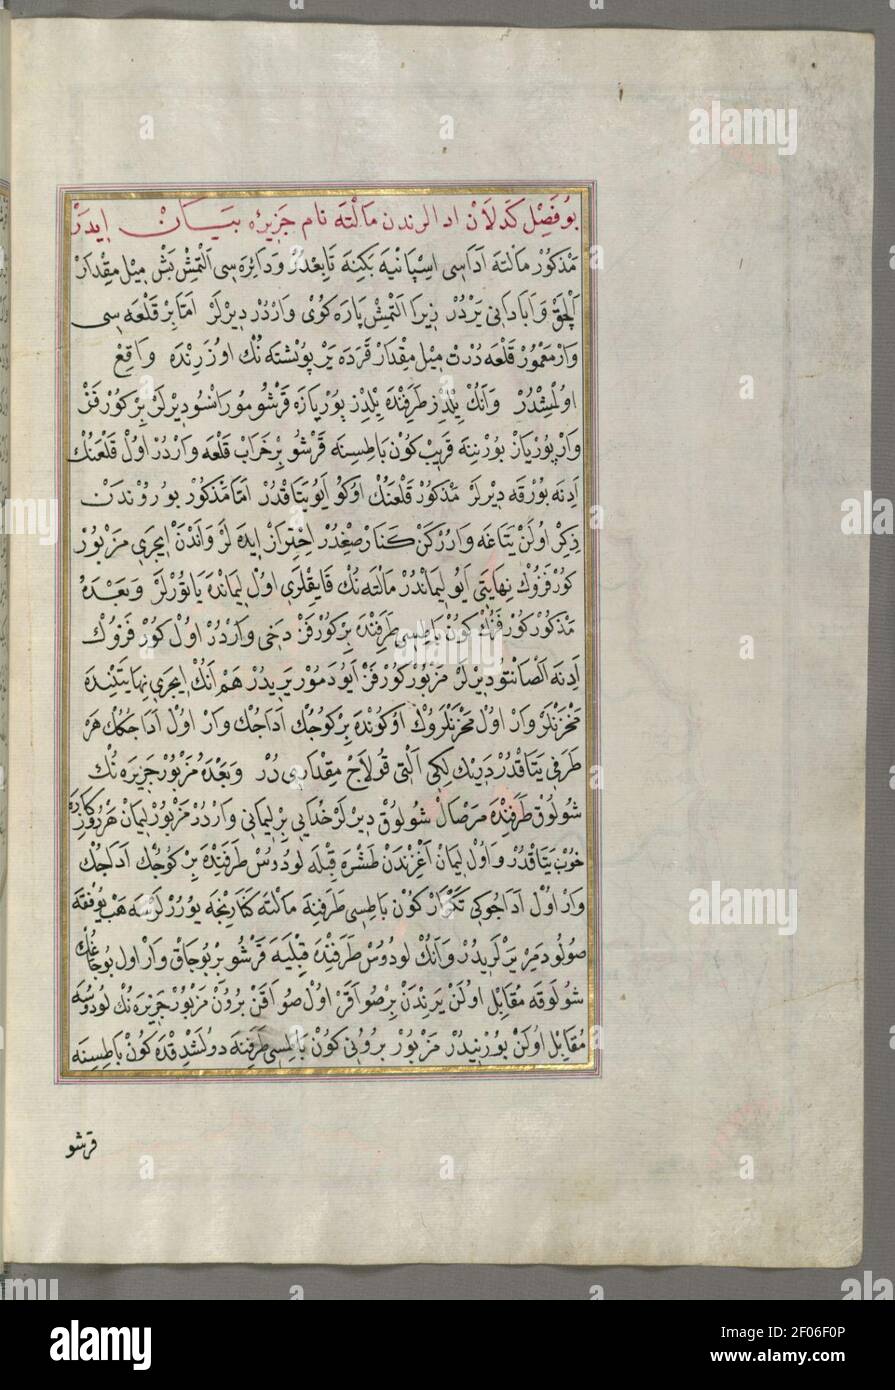 بو فصل كدلان ادالرندن مالته نام جزيره بيان ايدر
مذكور مالته اداسى اسپانيه بكينه تابعدر و دايره سى التمش بش ميل مقدار
الچق و ابادانى يردر زيرا التمش پاره كوى واردر ديرلر اما بر قلعه سى
وار معمور قلعه درت ميل مقدار قرده ير پوشته نك اوزرنده واقع
اولمشدر و انك يلدز طرفنده يلدز بوريازه قرشو موراسو ديرلر بر كورفز
وار بورياز بورننه قريب كون باطيسنه قرشو بر خراب قلعه واردر اول قلعه نك
ادنه بورقه ديرلر مذكور قلعه نك اوكو ايو يتاقدر اما مذكور بوروندن
ذكر اولن يتاغه وارركن كنار صغدر احتراز ايده لر واندن ايجرى مزبور
كورفزوك نهايتى ايو ليماندر مالته نك قايقلرى اول ليمانده ياتورلر و بعده
مذكور كورفزك كون باطيسى طرفنده بر كورفز دخى واردر اول كورفزوك
ادنه الصانتو ديرلر مزبور كورفز ايو دمور يريدر هم انك ايجرى نهايتنده
مخزنلر وار اول مخزنلروك اوكونده بر كوجك اداجك وار اول اداجكك هر
طرفى يتاقدر درينلكى التى قولاج مقدارى در و بعده مزبور جزيره نك
شولوق طرفنده مرصال شولوق ديرلر خدايى بر ليمانى واردر مزبور ليمان هر روزكاره
خوب يتاقدر و اول ليمان اغزندن طشره قبله لودوس طرفنده بر كوجك اداجك
وار اول اداجوكى تكرار كون باطيسى طرفنه مالته كنارنجه يوررلرسه هب يوفقه
صولو دمر يرلريدر و انك لودوس طرفنده قبليه قرشو بر بوجاق وار اول بوجاغك
شولوقه مقابل اولن يرندن بر صو اقر اول صو اقن برون مزبور جزيره نك لودوسه
مقابل اولن بورنيدر مزبور برونى كون باطيسى طرفنه دولشدقده كون باطيسنه
قرشو
alamy
Image ID: 2F06F0P
www.alamy.com